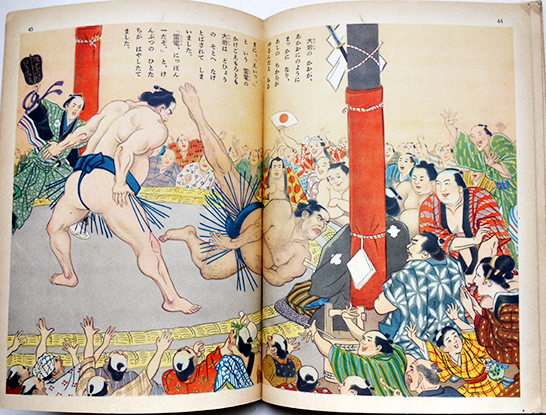 44
大岩の かおが、
あかおにのように
まっかに なり、
あしの ちからが
ゆるんだと みる
45
まに、「えいっ」
と いう 雷電の
かけごえもろとも
大岩は どひょう
の そとへ なげ
とばされて しま
いました。
「雷電、にっぽん
一だぞ。」と、け
んぶつの ひとた
ちが はやしたて
ました。